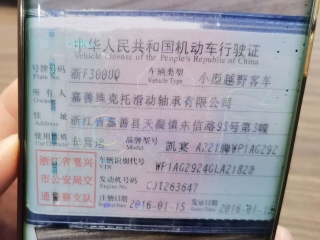 中华人民共和国机动车行驶证
Vehicle License of the People's Republic of China
号牌号码 浙F300UQ 车辆类型 小型越野客车
Plate No. Vehicle Type
所有人 嘉善维克托滑动轴承有限公司
Owner
住址 浙江省嘉善县天凝镇东信路93号第3幢
使用性质 非营运 凯宴
浙江省嘉兴市公安局交通警察支队
车辆识别代号 WP1AG2924GLA21828
VIN
发动机号码 CJT263647
Engine No.
注册日期 2016-01-15 发证日期 2016-01-15